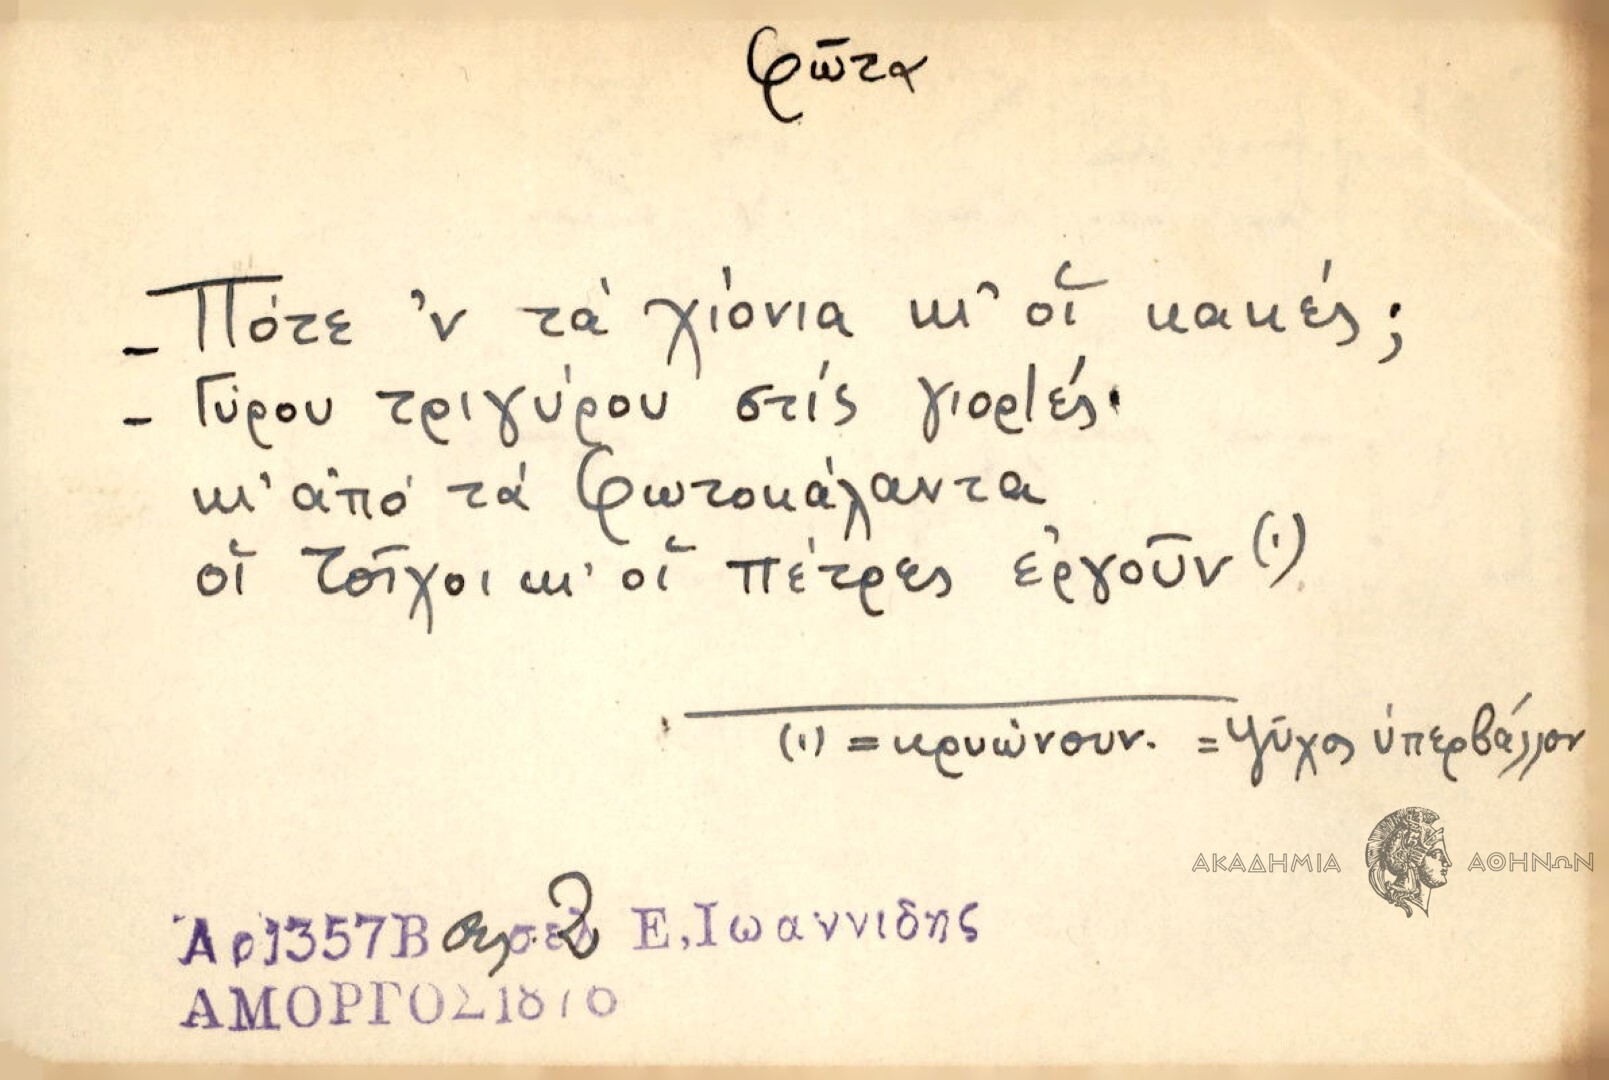 Φῶτα
– Πότε 'ν τὰ χιόνια κι' οἱ κακές;
– Γύρου τριγύρου στίς γιορτές·
κι' ἀπό τά Φωτοκάλαντα
οἱ τοῖχοι κι' οἱ πέτρες ἐργοῦν (1)
(1) = κρυώνουν. = Ψῦχος ὑπερβάλλον
ΑΚΑΔΗΜΙΑ ΑΘΗΝΩΝ
Ἀρ 1357Β σελ. 2 Ε, Ιωαννιδης
ΑΜΟΡΓΟΣ 1876